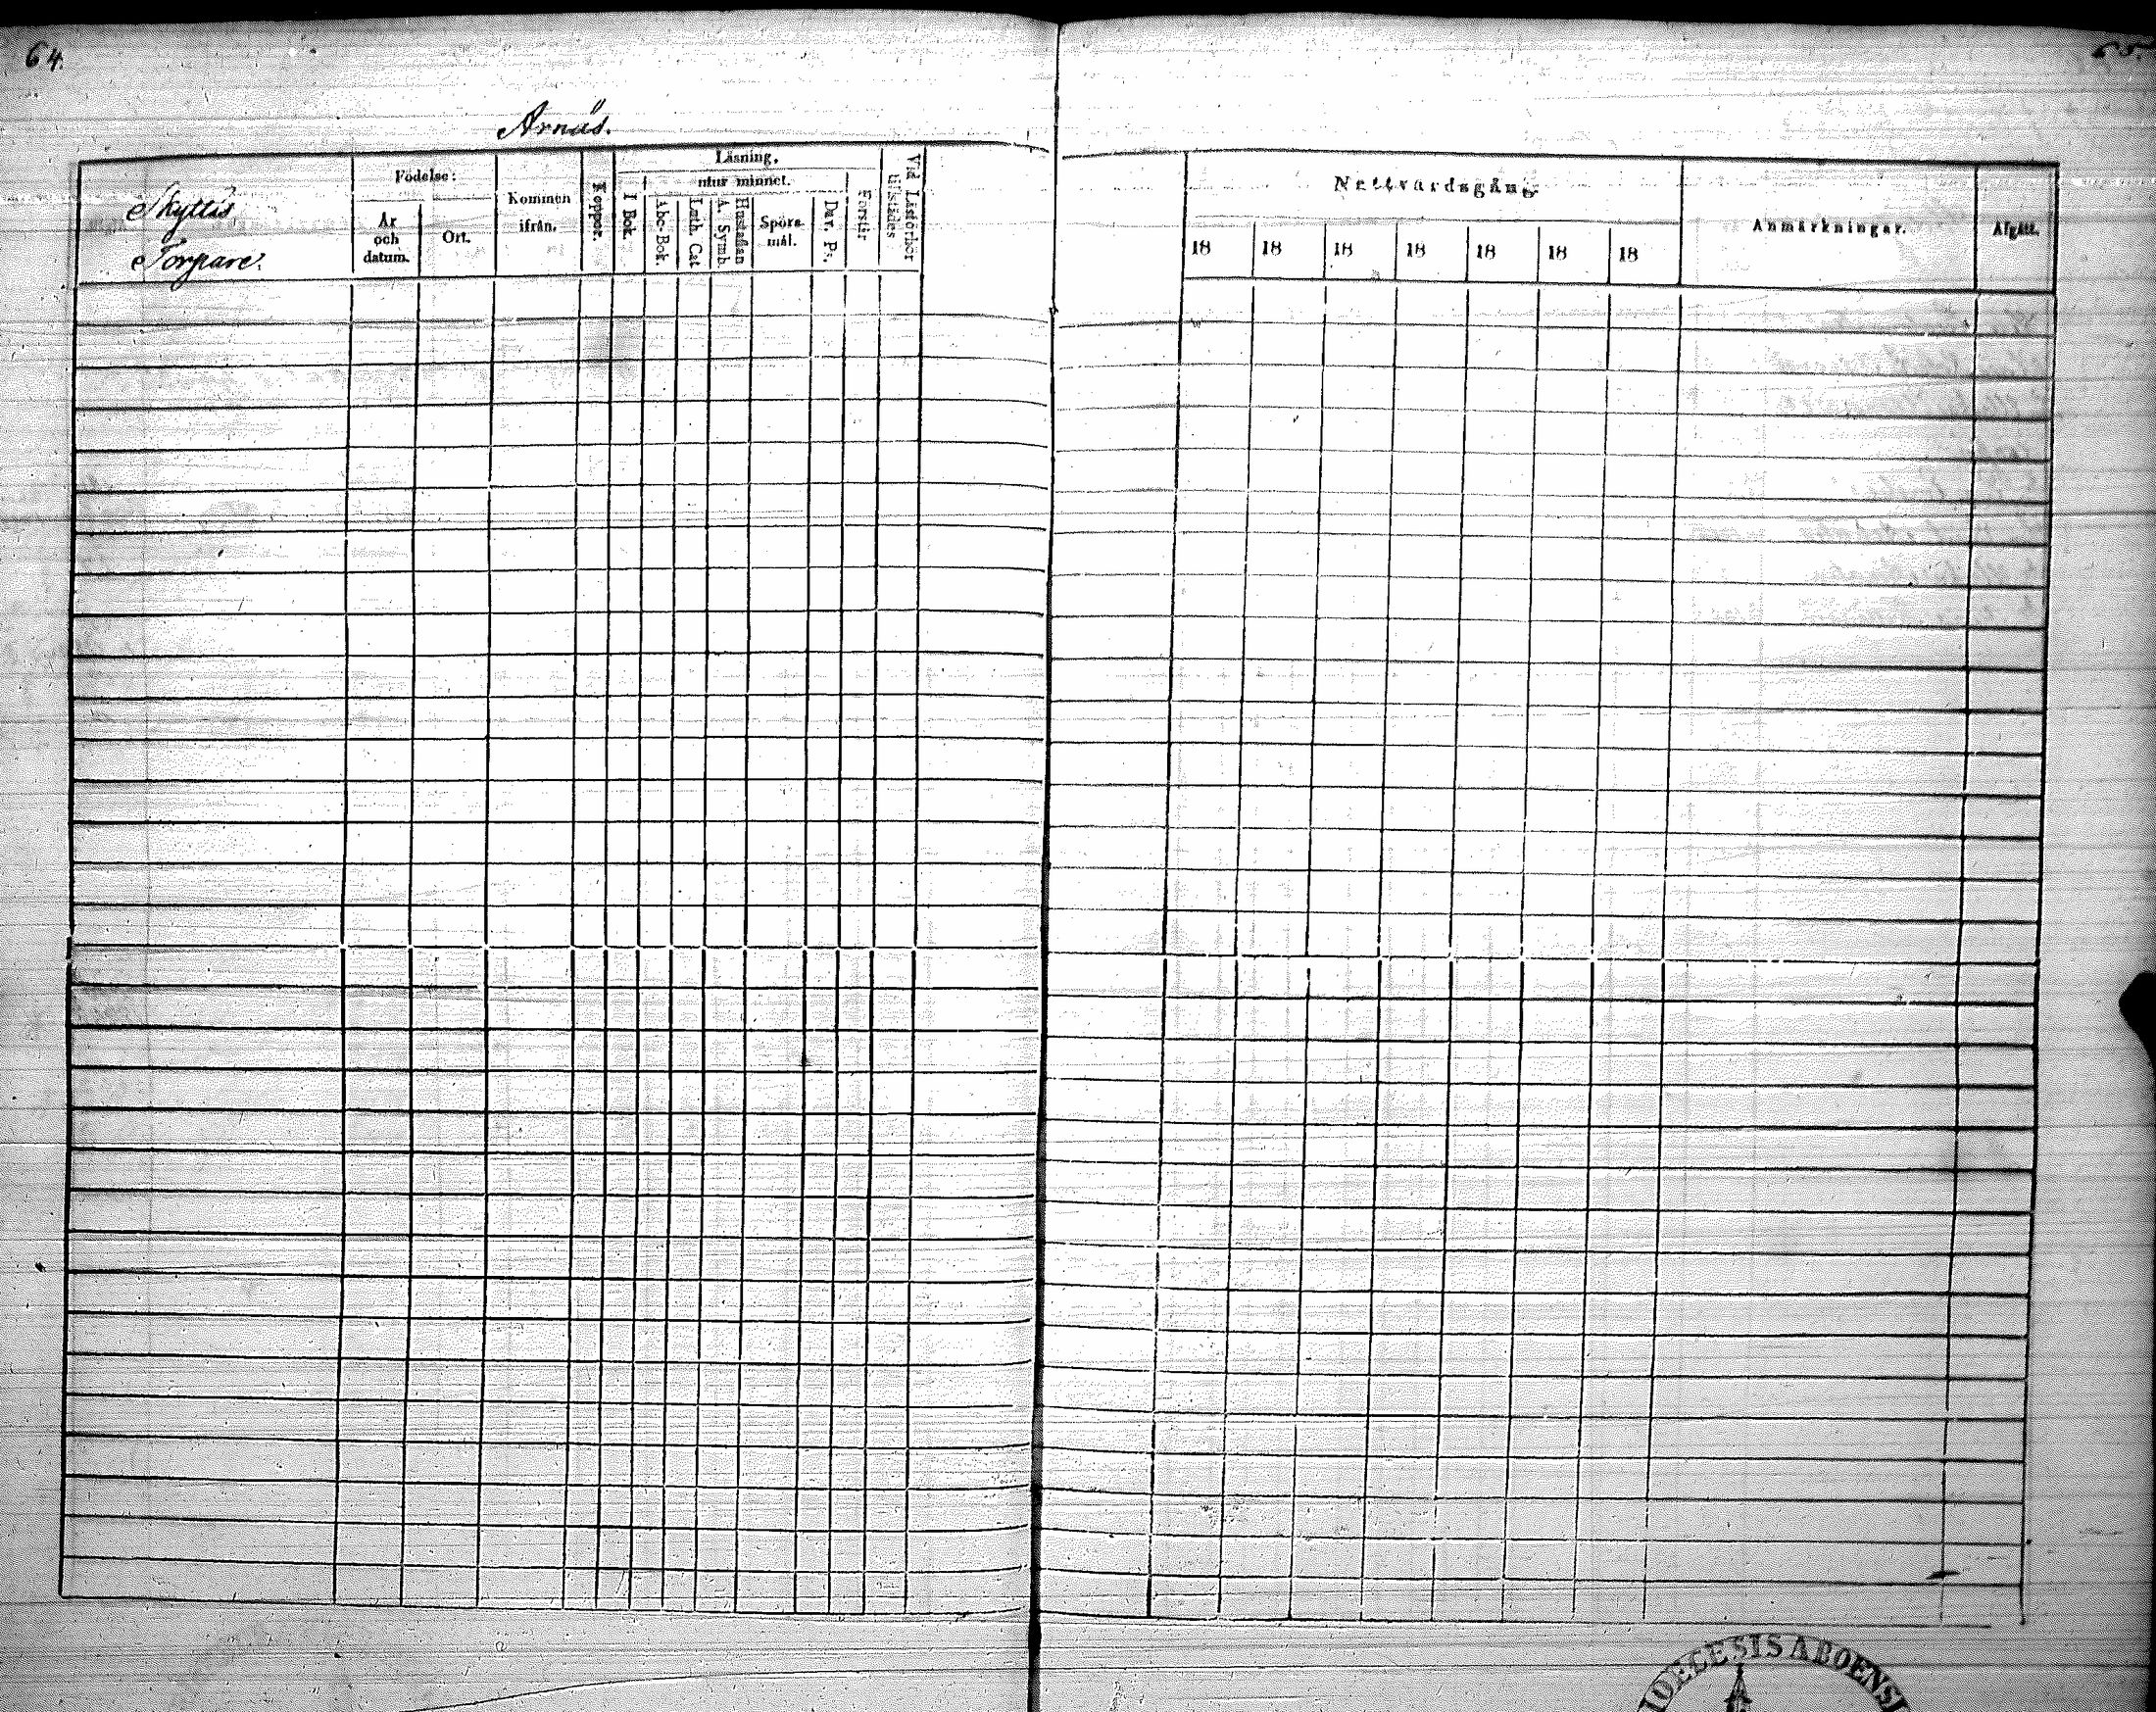 64.
65.
Arnäs.
Skyttis
Torpare.
Födelse:
År
och
datum.
Ort.
Kommen
ifrån.
Koppor.
Läsning.
I Bok.
utur minnet.
Abc-Bok.
Luth. Cat
A. Symb.
Hustaflan
Spörs-
mål.
Dav. Ps.
Förstår
Vid Läsförhör
tillstädes
Nattvardsgång.
18 18 18 18 18 18 18
Anmärkningar.
Afgått.
DIOECESIS ABOENSI